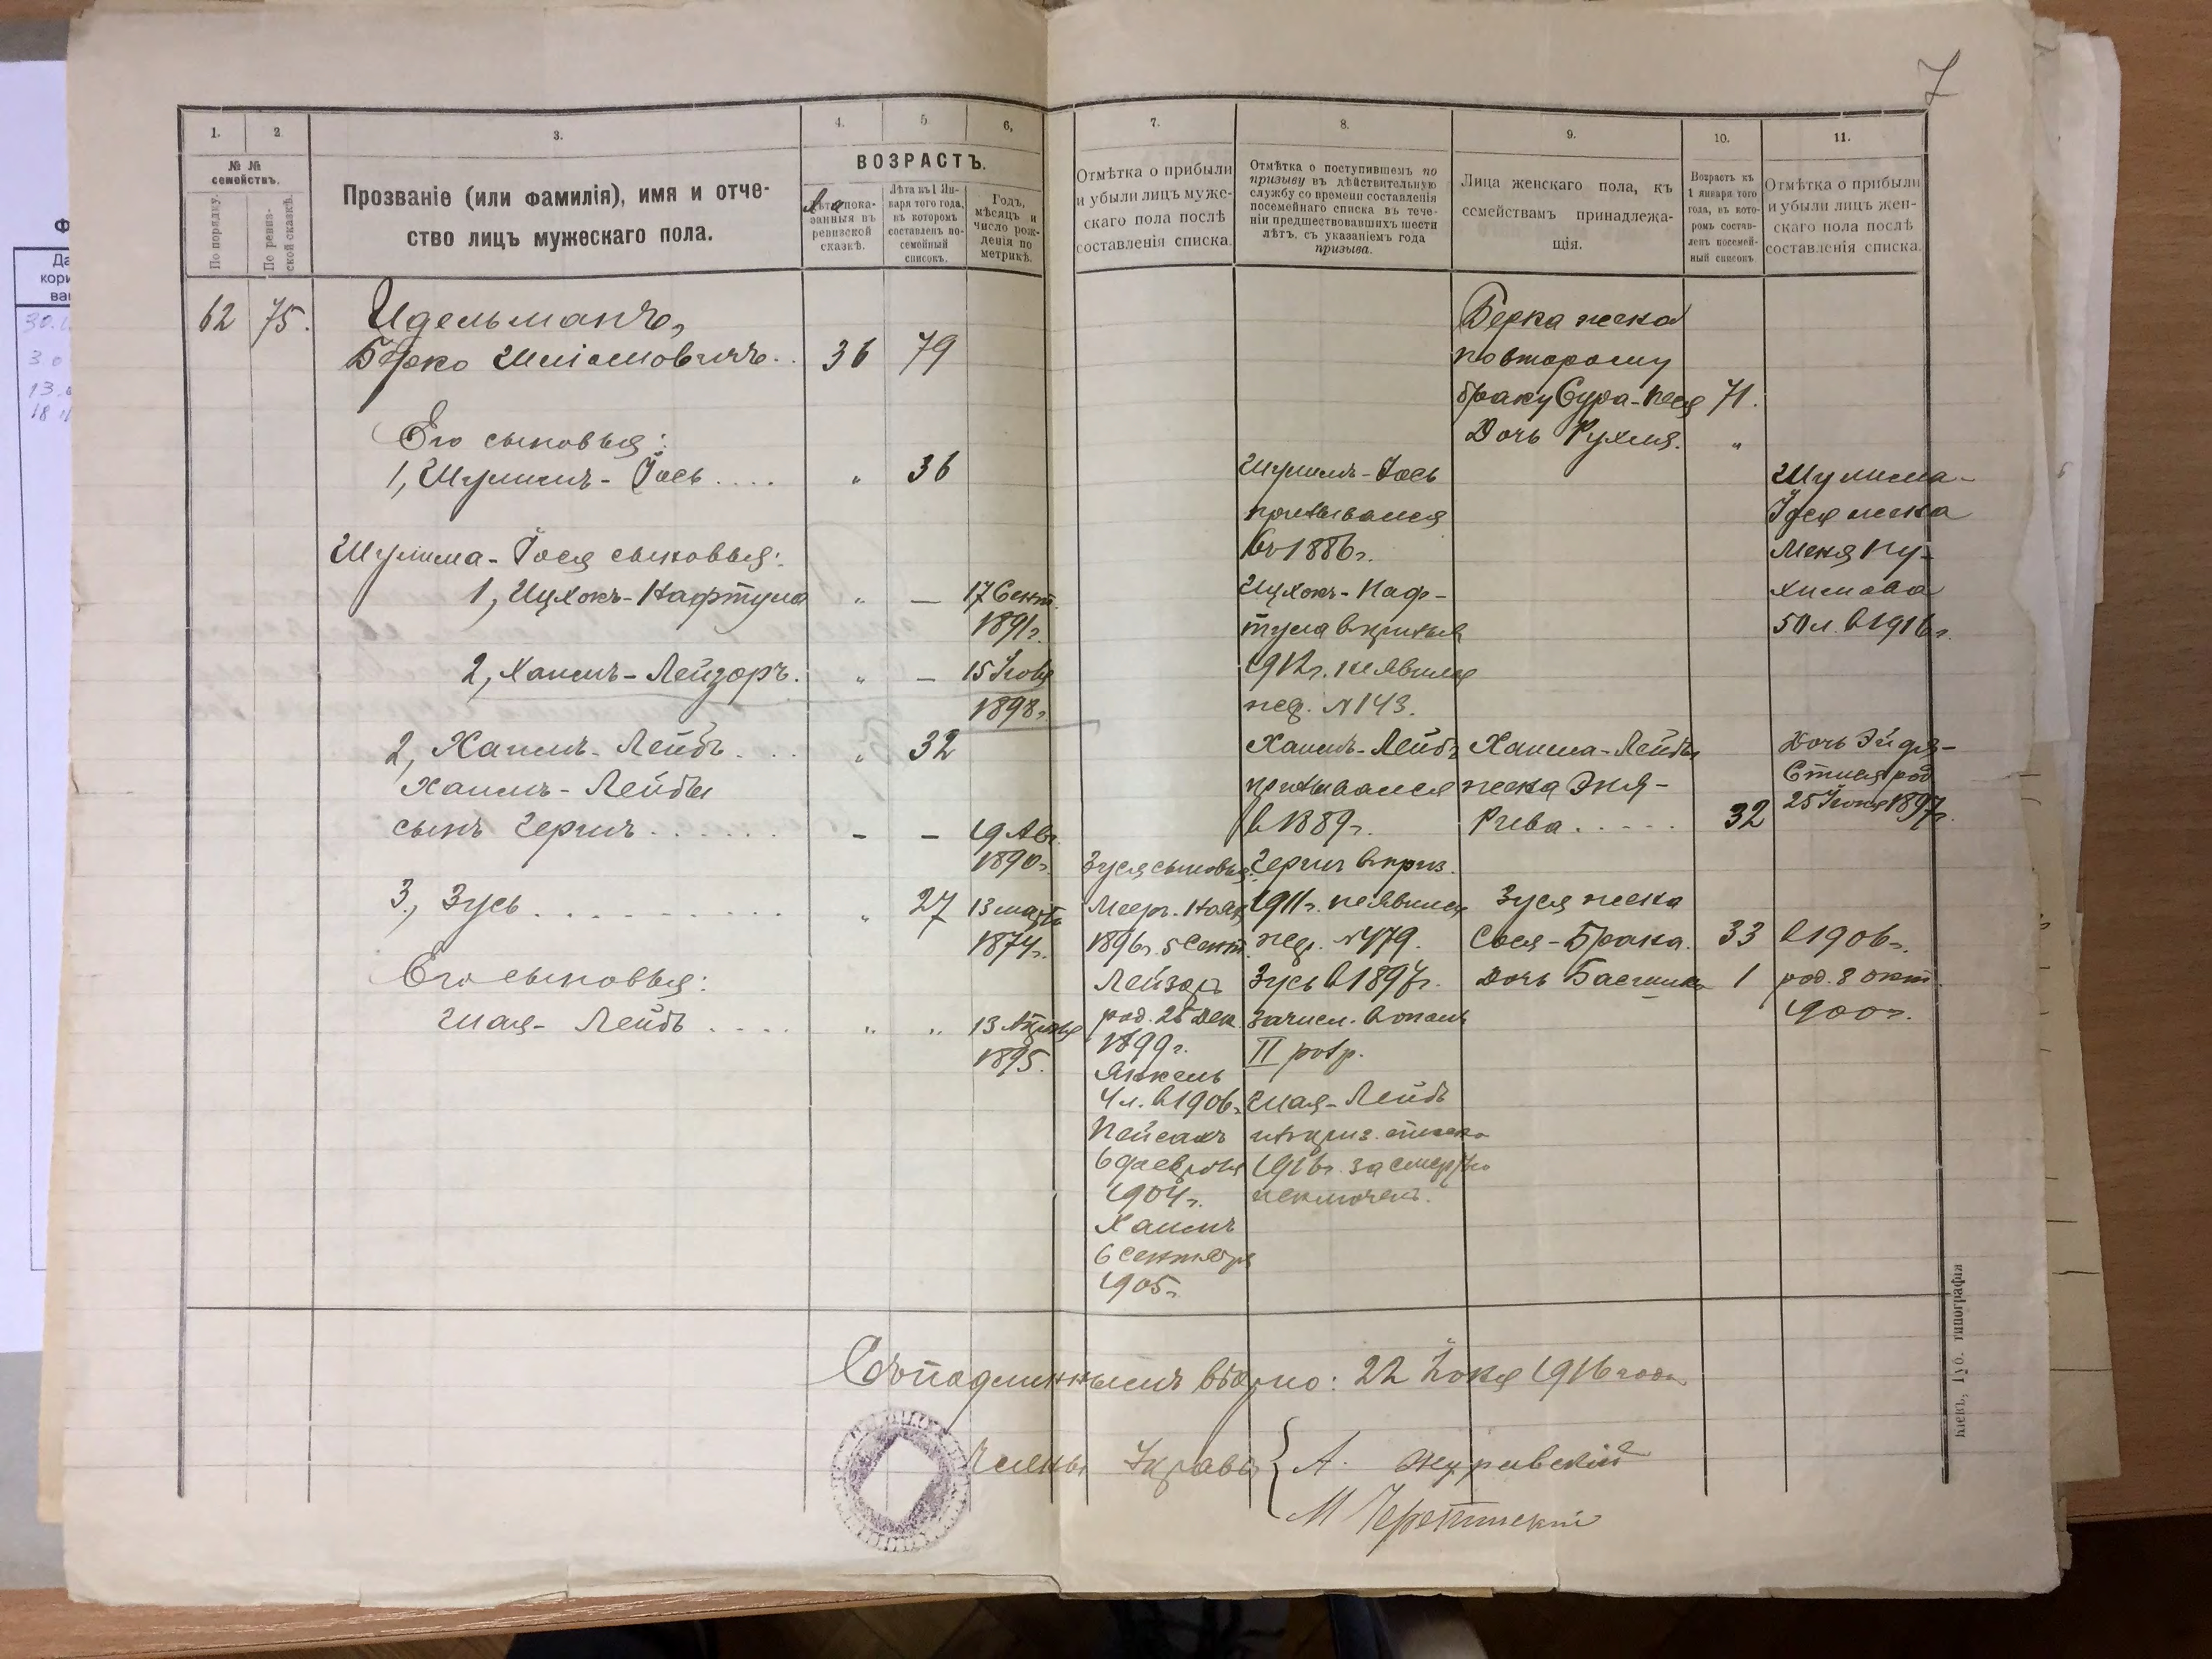 7
1.
2
3.
4.
5
6,
7.
8.
9.
10.
11.
№ №
семействъ.
По порядку.
По ревиз-
ской сказкѣ.
Прозваніе (или фамилія), имя и отче-
ство лицъ мужескаго пола.
ВОЗРАСТЪ.
Лѣта пока-
занныя въ
ревизской
сказкѣ.
Лѣта къ 1 Ян-
варя того года,
въ которомъ
составленъ по-
семейный
списокъ.
Годъ,
мѣсяцъ и
число рож-
денія по
метрикѣ.
Отмѣтка о прибыли
и убыли лицъ муже-
скаго пола послѣ
составленія списка.
Отмѣтка о поступившемъ по
призыву въ дѣйствительную
службу со времени составленія
посемейнаго списка въ тече-
ніи предшествовавшихъ шести
лѣтъ, съ указаніемъ года
призыва.
Лица женскаго пола, къ
семействамъ принадлежа-
щія.
Возрастъ къ
1 января того
года, въ кото-
ромъ состав-
ленъ посемей-
ный списокъ
Отмѣтка о прибыли
и убыли лицъ жен-
скаго пола послѣ
составленія списка.
62 75.
Идельманъ,
Берко Шліомовичъ.. 36 79
Его сыновья:
1, Шулимъ-Іось.... " 36
Шулима-Іося сыновья:
1, Ицхокъ-Нафтула " — 17 Сент.
1891 г.
2, Хаимъ-Лейзоръ. " — 15 Іюля
1898 г.
2, Хаимъ-Лейбъ... " 32
Хаимъ-Лейбы
сынъ Гершъ...... - - 19 Авг.
1890 г.
3, Зусь.......... " 27 13 марта
1874 г.
Его сыновья:
Шая-Лейбъ.... " " 13 Апрѣля
1895.
Зуся сыновья:
Мееръ-
1896 г. 5 Сент.
Лейзоръ
род. 25 Дек.
1899 г.
Янкель
4 л. в 1906 г.
Пейсахъ
6 февраля
1904 г.
Хаимъ
6 сентября
1905 г.
Шулимъ-Іось
призывался
въ 1886 г.
Ицхокъ-Наф-
тула в призывъ
1912 г. не явился
№ 143.
Хаимъ-Лейбъ
призывался
в 1889 г.
Гершъ в приз.
1911 г. не явился
№ 479.
Зусь в 1897 г.
зачисл. в ополч.
II разр.
Шая-Лейбъ
изъ приз. списка
1916 г. за смертью
исключенъ.
Берка жена
по второму
браку Сура-Песя 71.
Дочь Рухля. "
Хаима-Лейбы
жена Эня-
Рива..... 32
Зуся жена
Сося-Брана. 33
Дочь 1
Шулима-
Іося жена
Меня Ну-
химова
50 л. в 1916 г.
Дочь Эйдя-
род.
25 Іюня 1897 г.
в 1906 г.
род. 8 окт.
1900 г.
Съ подлиннымъ вѣрно: 22 Іюня 1916 года
Члены Управы { А.
М
Кіевъ, Губ. типографія